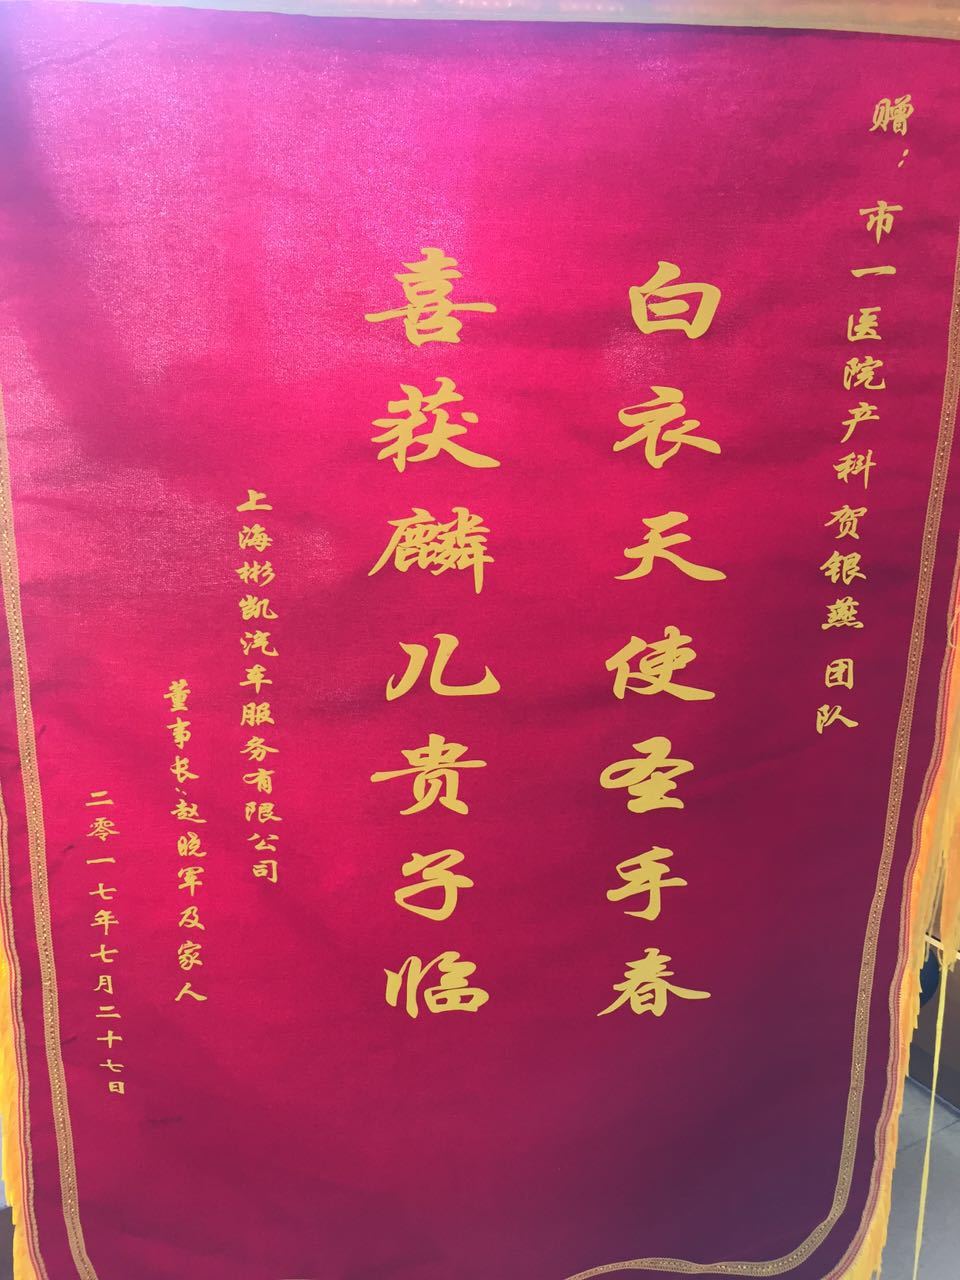 赠：市一医院产科贺银燕团队
白衣天使圣手春
喜获麟儿贵子临
上海彬凯汽车服务有限公司
董事长：赵晓军及家人
二零一七年七月二十七日